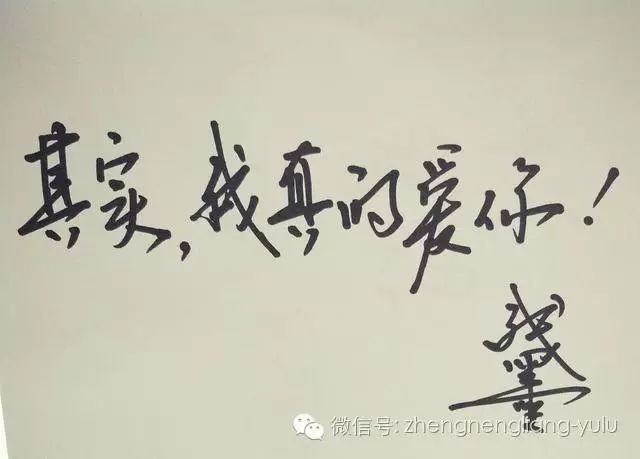 其实,我真的爱你!
微信号: zhengnengliang-yulu